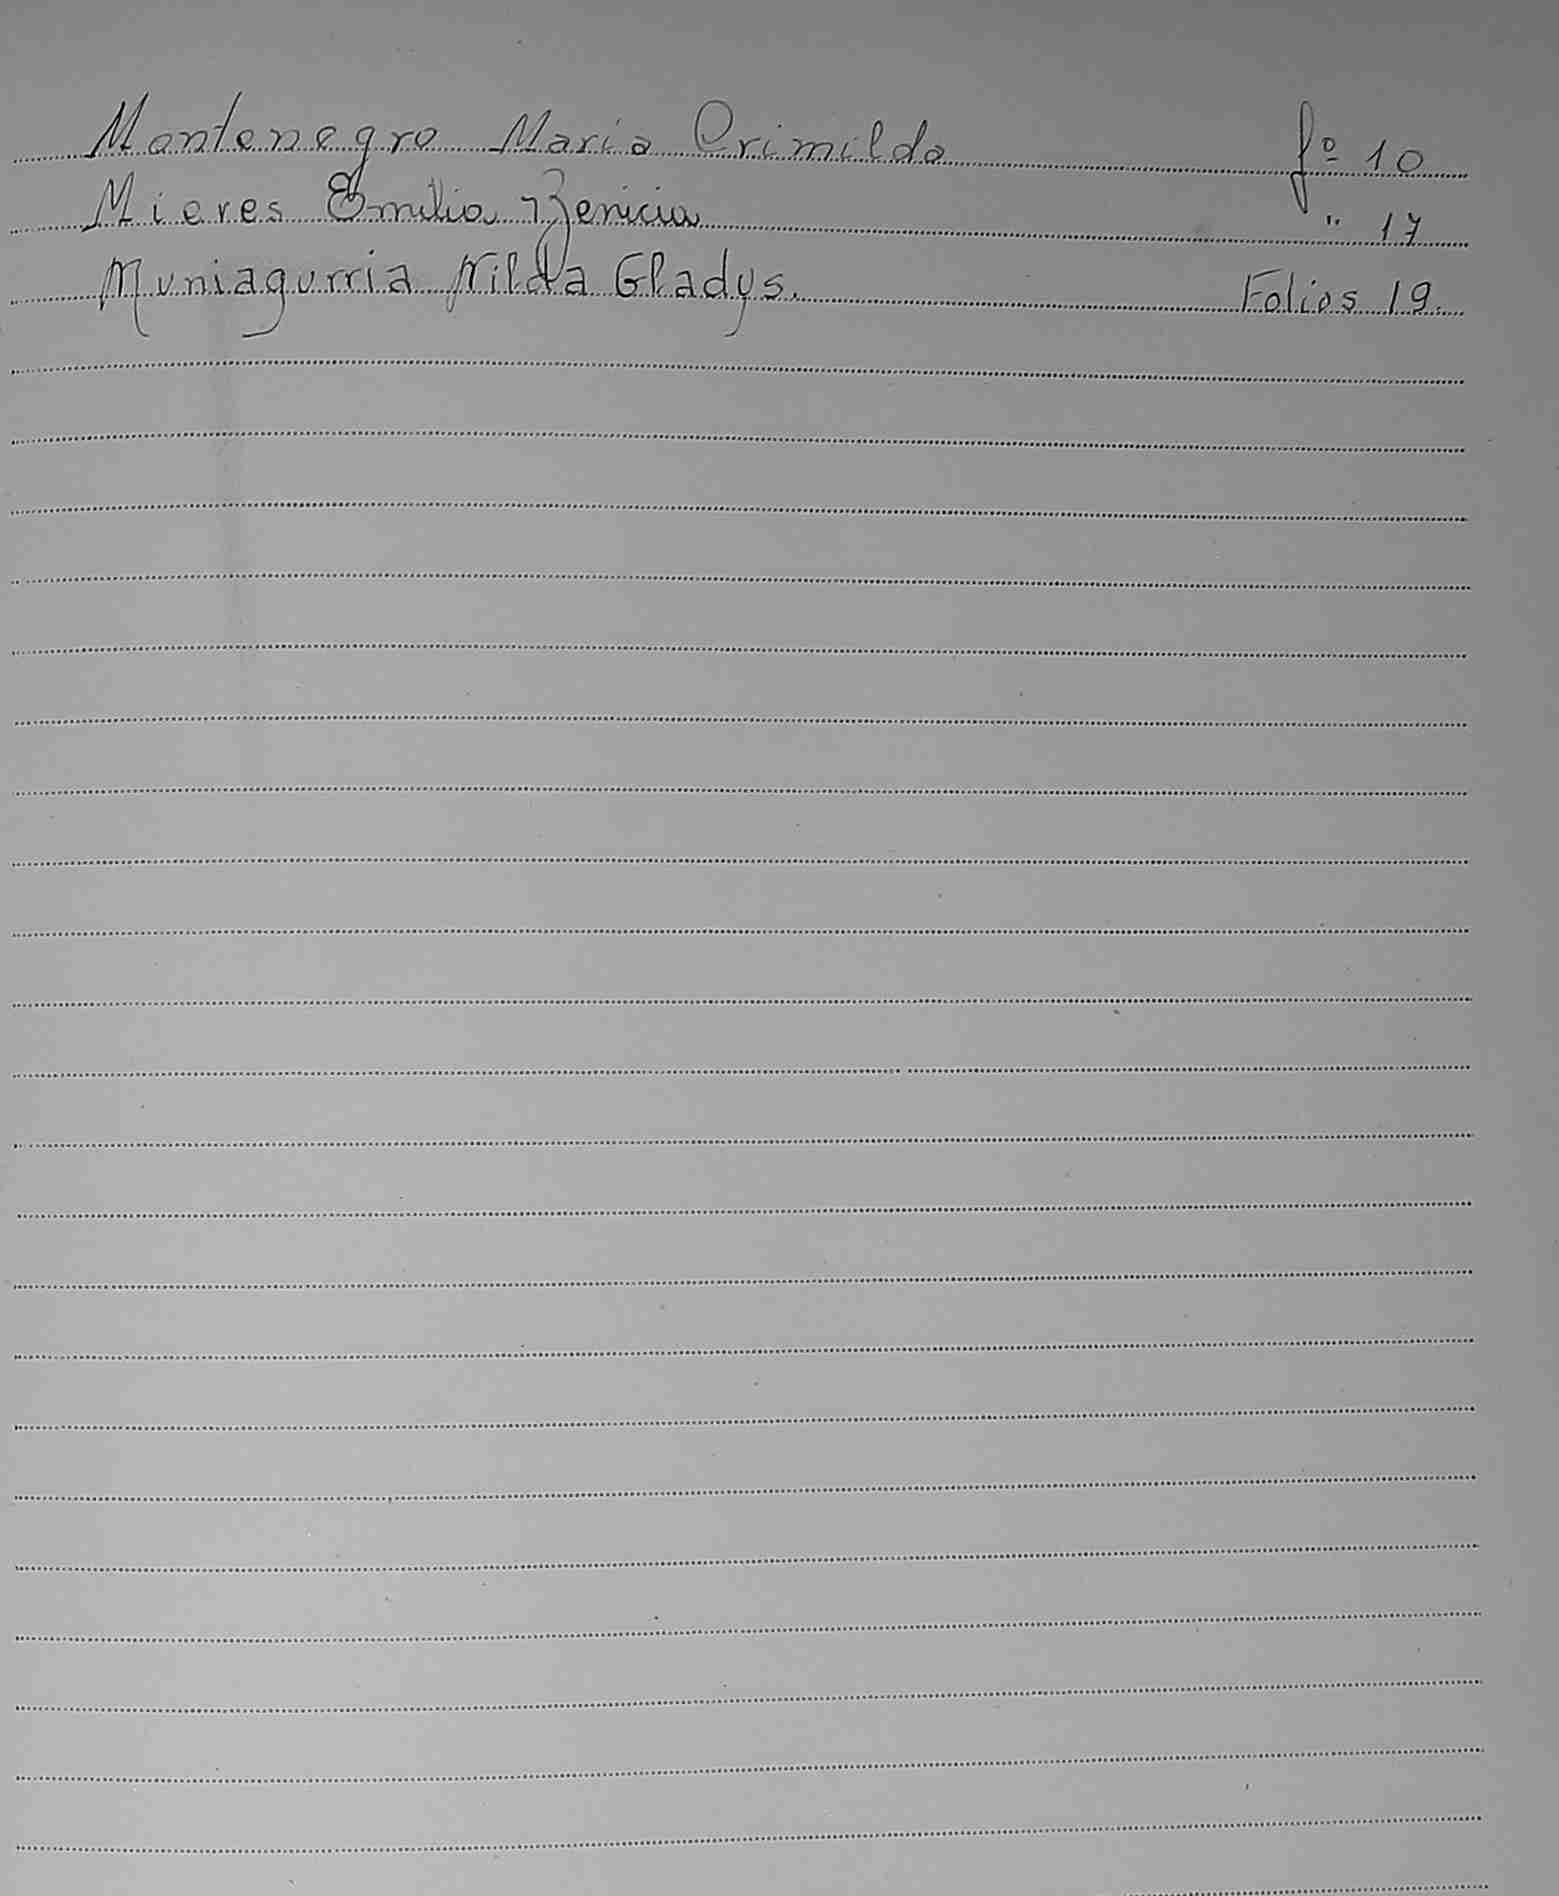 Montenegro Maria Crimilda fº 10
Mieres Emilia Benicia " 17
Muniagurria Nilda Gladys. Folios 19.